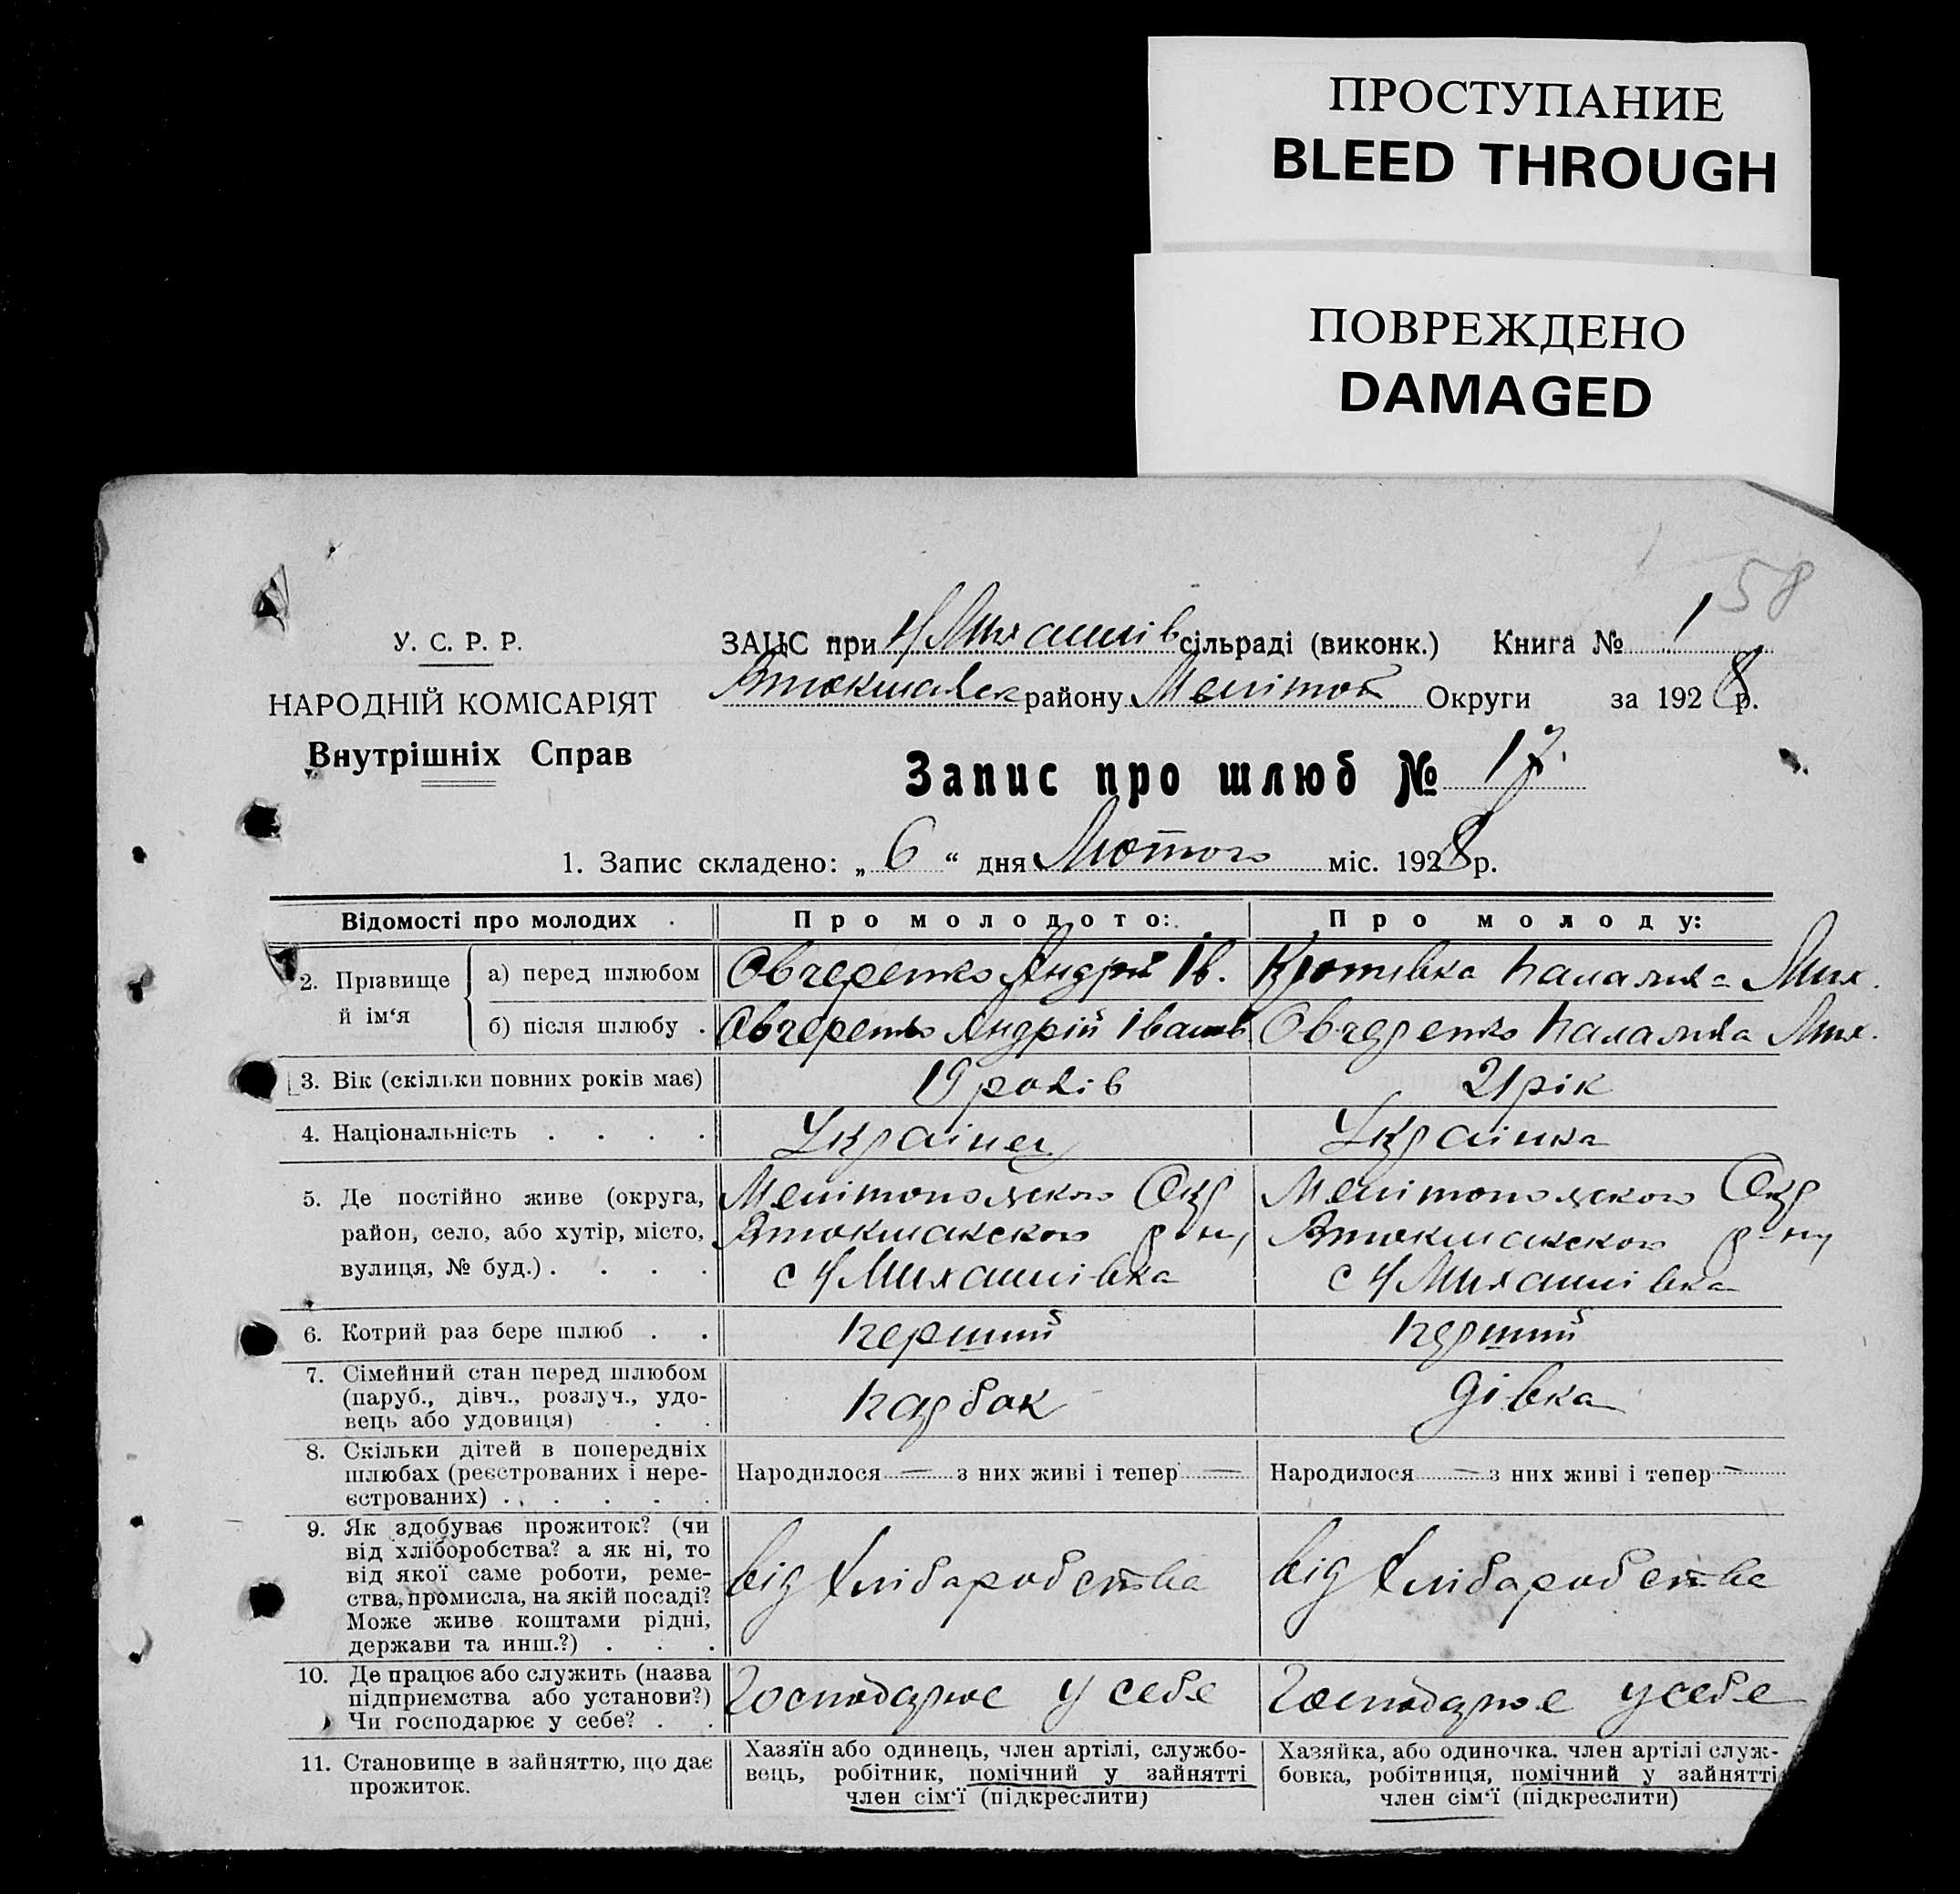 ПРОСТУПАНИЕ
BLEED THROUGH
ПОВРЕЖДЕНО
DAMAGED
58
У. С. Р. Р.
НАРОДНІЙ КОМІСАРІЯТ
Внутрішніх Справ
ЗАЦС при Н Михайлів сільраді (виконк.) Книга № 1
Втокмакск району Мелітоп Округи за 1928 р.
Запис про шлюб № 17.
1. Запис складено: „ 6 “ дня Лютого міс. 1928 р.
Відомості про молодих
Про молодото:
Про молоду:
2. Прізвище й ім‘я
а) перед шлюбом
Овчеренко Андрій Ів.
Палажка Мих.
б) після шлюбу
Овчеренко Андрій Іванов
Овчеренко Палажка Мих.
3. Вік (скільки повних років має)
19 років
21 рік
4. Національність . . . .
Українец
Українка
5. Де постійно живе (округа,
район, село, або хутір, місто,
вулиця, № буд.) . . . .
Мелітопольского Окр
Втокмакского р-ну
с Н Михайлівка
Мелітопольского Окр
Втокмакского р-ну
с Н Михайлівка
6. Котрий раз бере шлюб . .
перший
перший
7. Сімейний стан перед шлюбом
(паруб., дівч., розлуч., удо-
вець або удовиця) . .
парбок
дівка
8. Скільки дітей в попередніх
шлюбах (реєстрованих і нере-
єстрованих) . . . . .
Народилося — з них живі і тепер —
Народилося — з них живі і тепер —
9. Як здобуває прожиток? (чи
від хліборобства? а як ні, то
від якої саме роботи, реме-
ства, промисла, на якій посаді?
Може живе коштами рідні,
держави та инш.?) . . .
від хлібаробства
від хлібаробства
10. Де працює або служить (назва
підприємства або установи?)
Чи господарює у себе? . .
Господарює у себе
Господарює у себе
11. Становище в зайняттю, що дає
прожиток.
Хазяїн або одинець, член артілі, службо-
вець, робітник, помічний у зайнятті
член сім‘ї (підкреслити)
Хазяйка, або одиночка. член артілі служ-
бовка, робітниця, помічний у зайнятті
член сім‘ї (підкреслити)